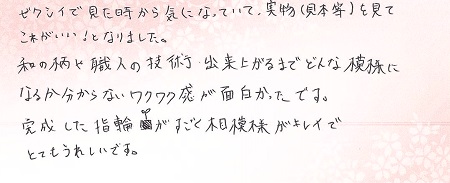 ゼクシィで見た時から気になっていて、実物(見本等)を見て
これがいい!となりました。
和の柄や職人の技術、出来上がるまでどんな模様に
なるか分からないワクワク感が面白かったです。
完成した指輪がすごく相模様がキレイで
とてもうれしいです。